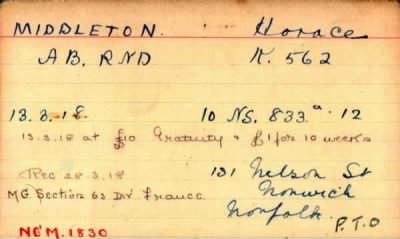 MIDDLETON. Horace
A.B. RND K. 562
13.3.18 10 NS. 833ª.12
13.3.18 at £10 Gratuity & £1 for 10 weeks
Rec 28.3.18 131 Nelson St
M.G. Section 63 Div France. Norwich
Norfolk.
P.T.O
NCM.1830